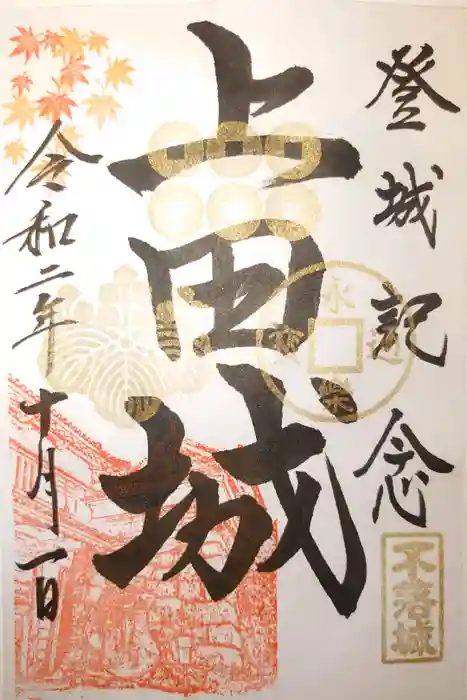 登城記念
上田城
令和二年十月一日
永楽通寳
不落城